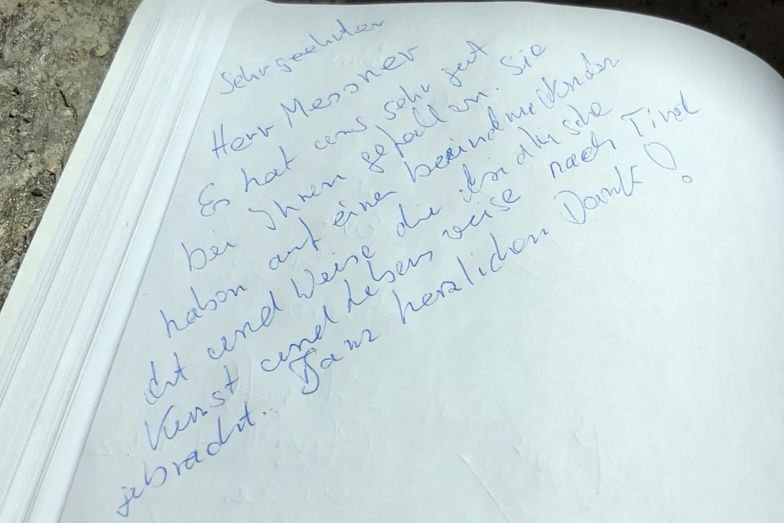 Sehr geehrter
Herr Messner
Es hat uns sehr gut
bei Ihnen gefallen. Sie
haben auf einer beeindruckender
Art und Weise die
Kunst und Lebensweise nach Tirol
gebracht. Ganz herzlichen Dank!